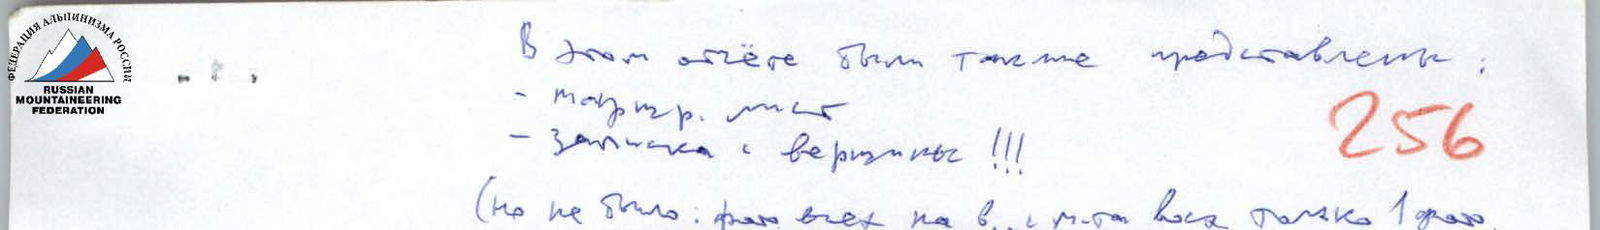 ФЕДЕРАЦИЯ АЛЬПИНИЗМА РОССИИ
RUSSIAN
MOUNTAINEERING
FEDERATION
В этом отчёте были также представлены:
- маршр. лист
- записка с вершины !!!
256
(но не было: фото всех на в.. с м-та восх только 1 фото